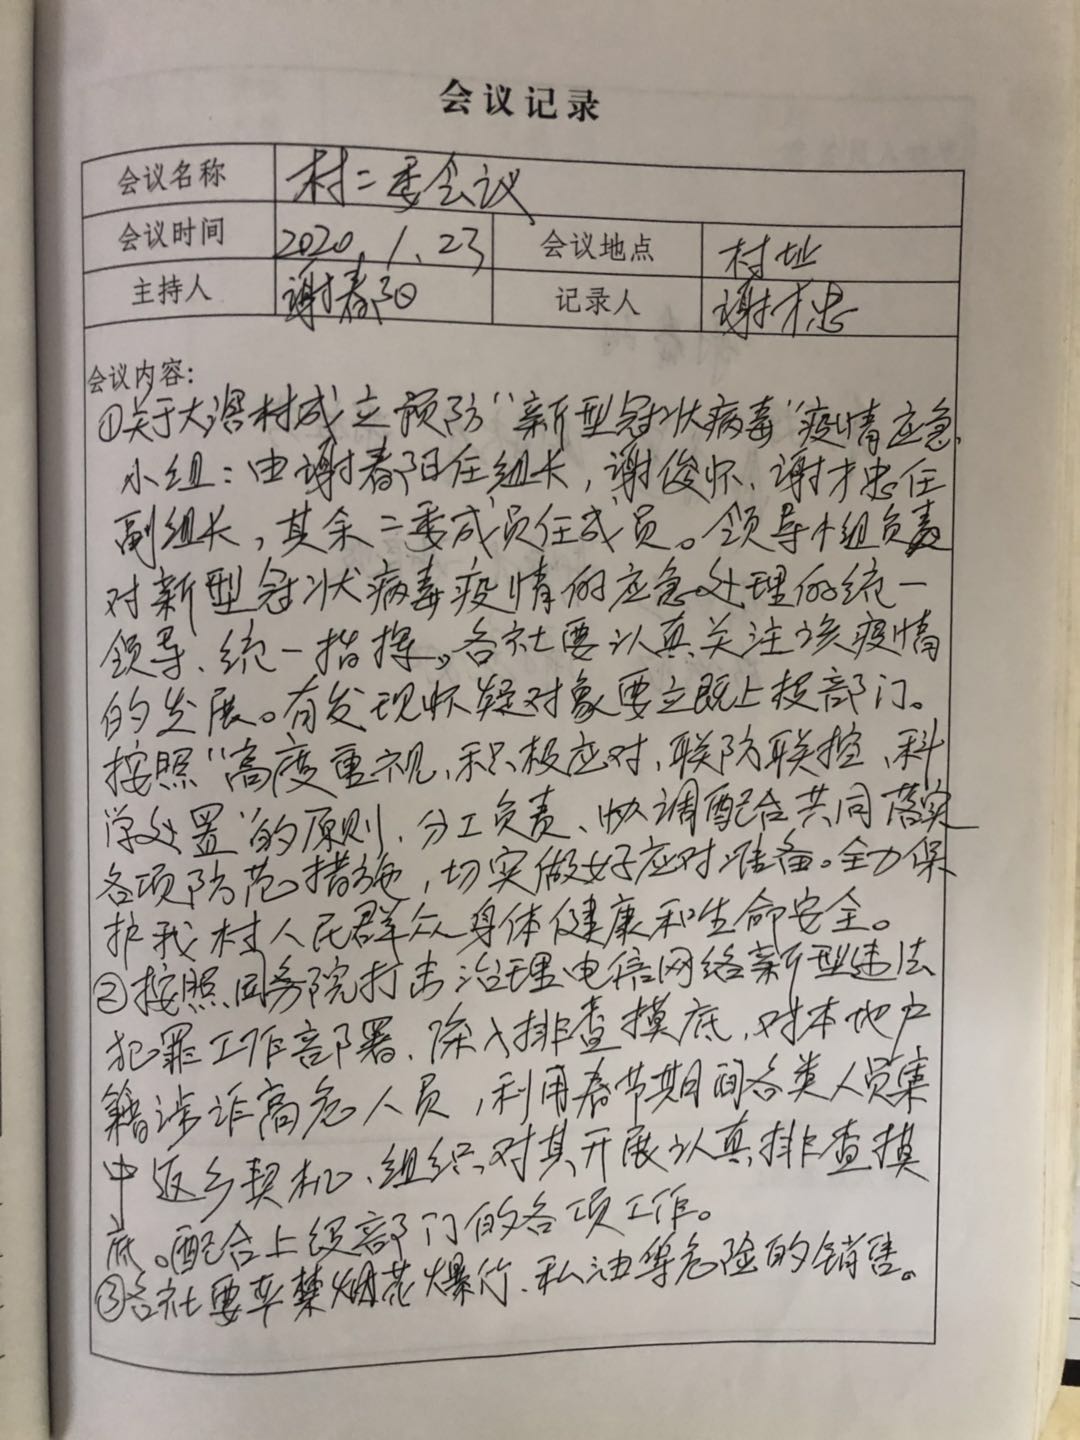 会议记录
会议名称 村二委会议
会议时间 2020.1.23 会议地点 村址
主持人 谢春阳 记录人 谢才忠
会议内容：
①关于大溪村成立预防“新型冠状病毒”疫情应急
小组：由谢春阳任组长，谢俊怀、谢才忠任
副组长，其余二委成员任成员。领导小组负责
对新型冠状病毒疫情的应急处理的统一
领导、统一指挥。各社要认真关注该疫情
的发展。有发现怀疑对象要立既上报部门。
按照“高度重视、积极应对、联防联控、科
学处置”的原则、分工负责、协调配合共同落实
各项防范措施，切实做好应对准备。全力保
护我村人民群众身体健康和生命安全。
②按照国务院打击治理电信网络新型违法
犯罪工作部署、深入排查摸底、对本地户
籍涉诈高危人员，利用春节期间各类人员集
中返乡契机、组织对其开展认真排查摸
底。配合上级部门的各项工作。
③各社要禁烟花爆竹、私油等危险的销售。